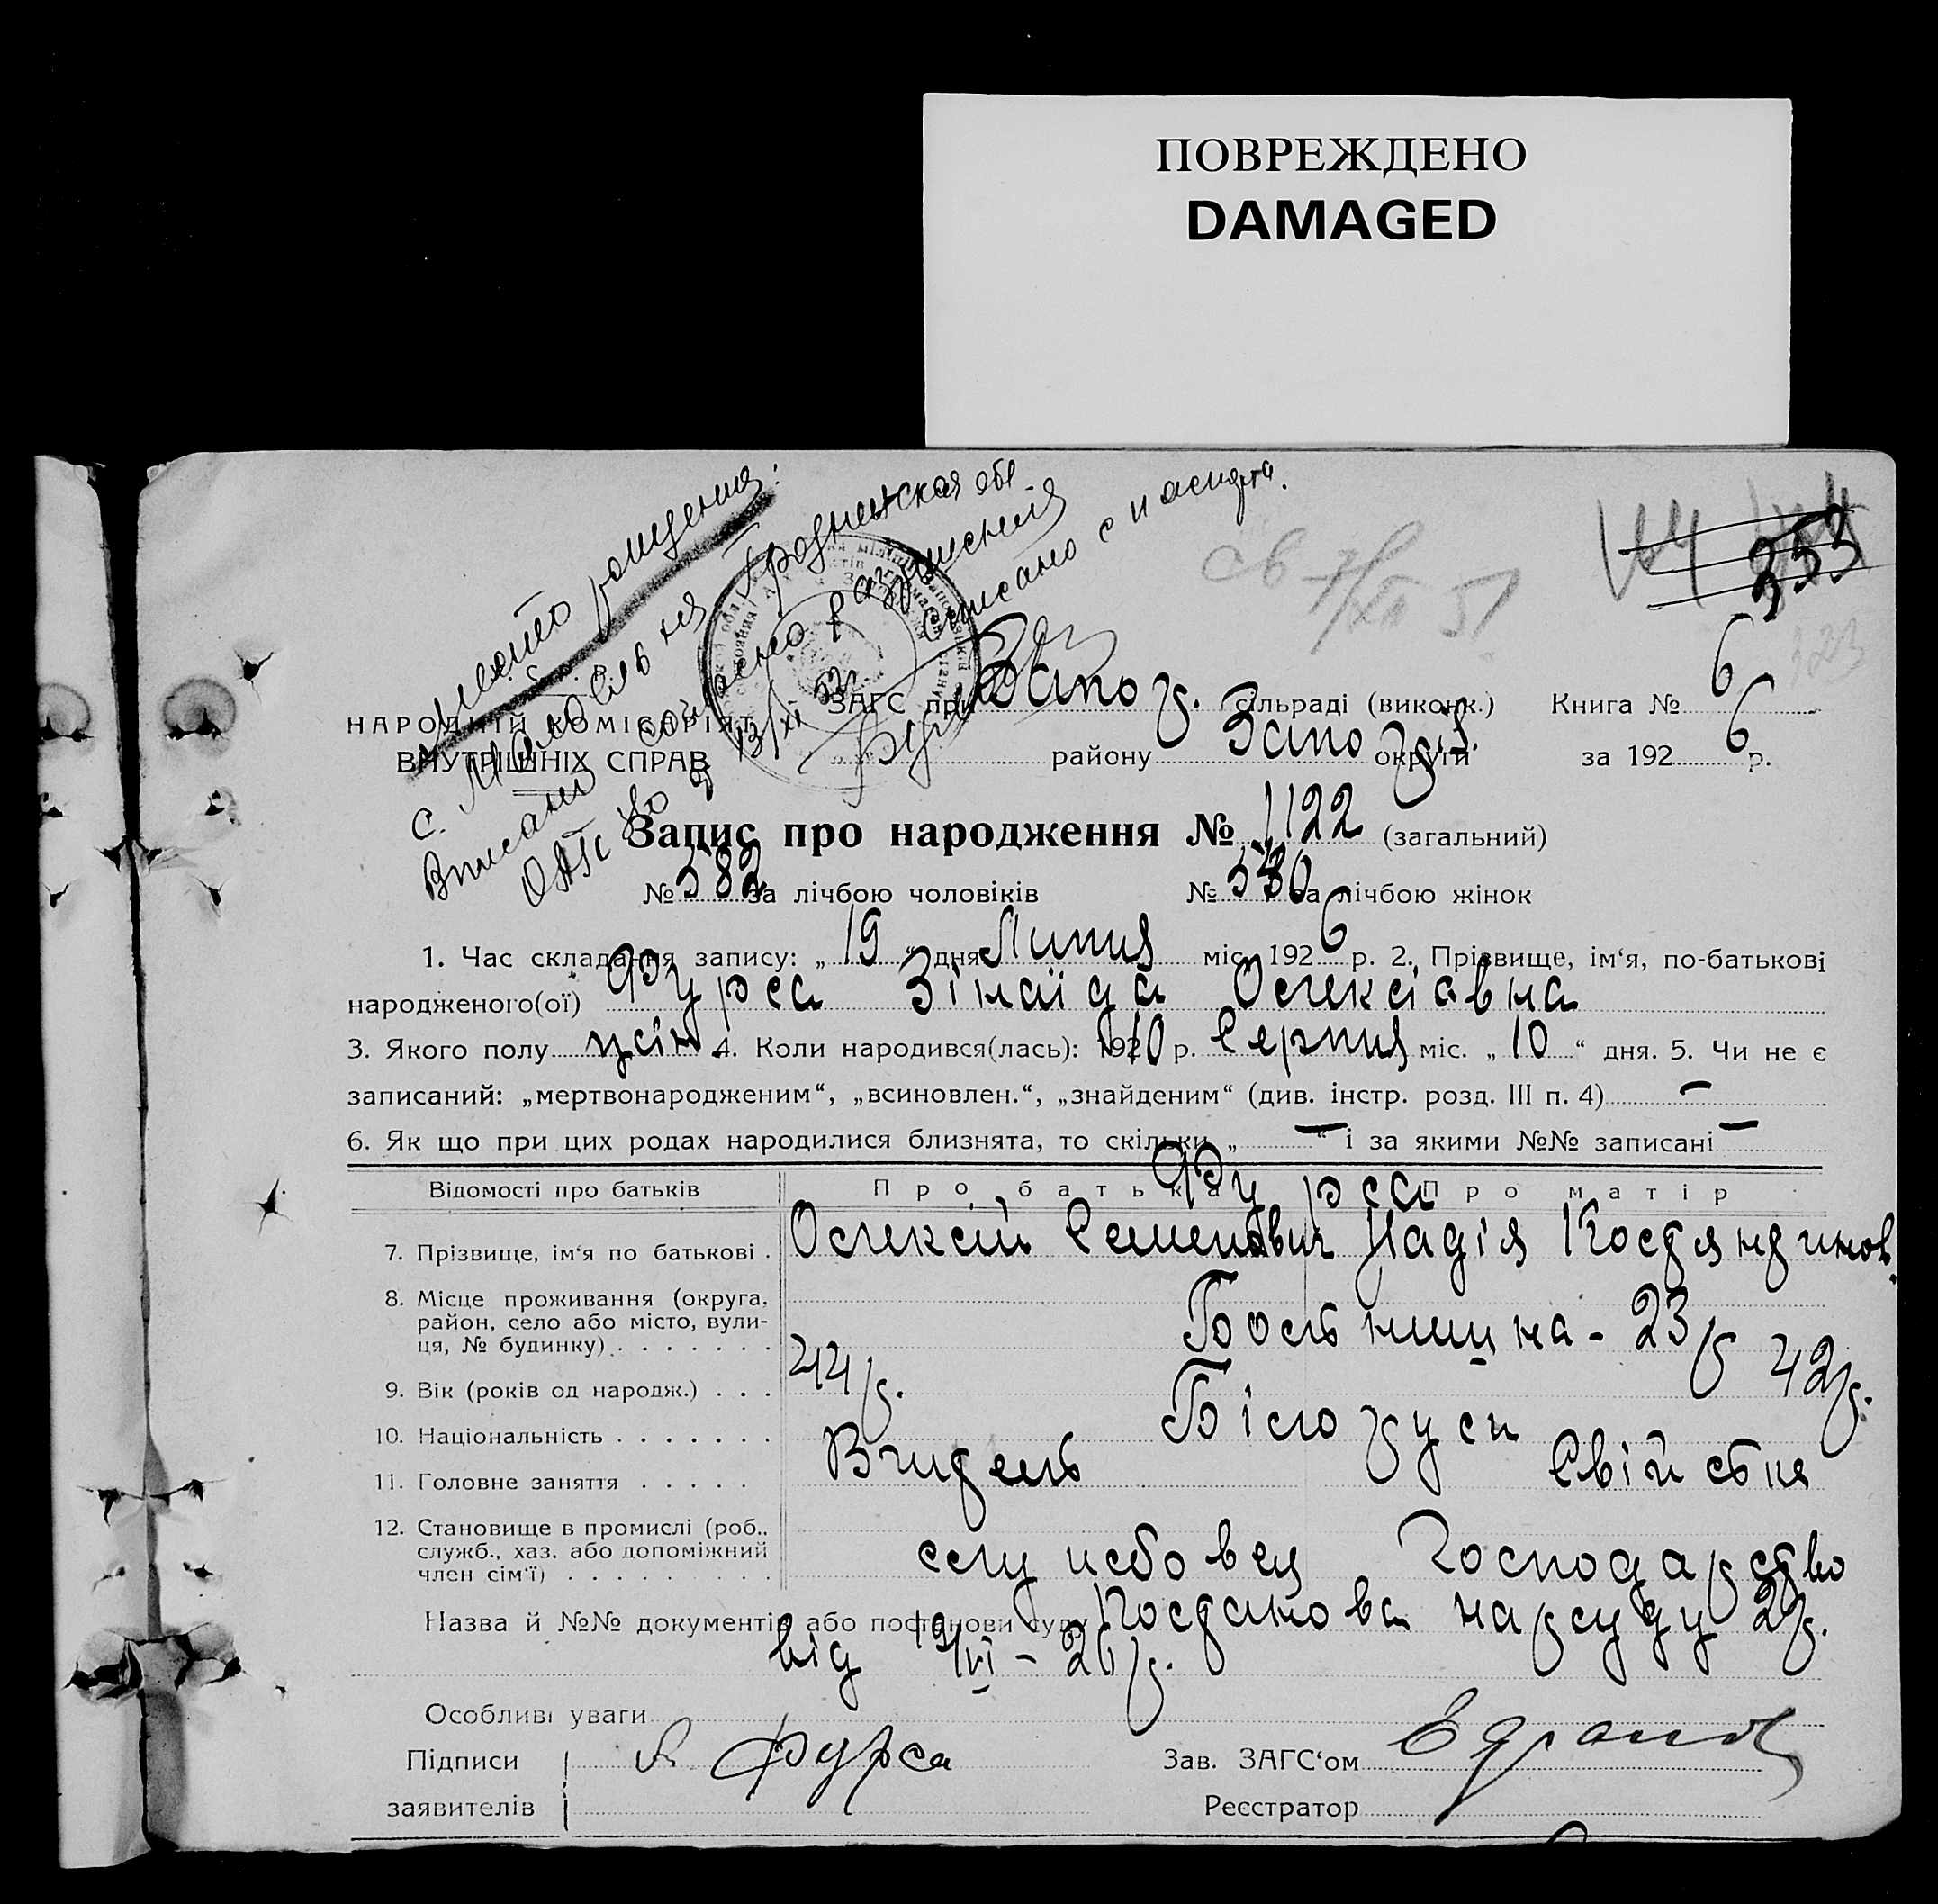 ПОВРЕЖДЕНО
DAMAGED
место рождения:
Гродненская обл
Вписано согласно разрешения
ОАГС
списано с паспорта.
св 7/XII 51
353
НАРОДНІЙ КОМІСАРІЯТ
ВНУТРІШНІХ СПРАВ
ЗАГС при Запор. сільраді (виконк.) Книга № 6
району Запоріз. округи за 1926 р.
Запис про народження № 1122 (загальний)
№ 582 за лічбою чоловіків № 540 за лічбою жінок
1. Час складання запису: „19“ дня Липня міс. 1926 р. 2. Прізвище, ім‘я, по-батькові
народженого(ої) Фурса Зінаїда Олексіівна
3. Якого полу жін. 4. Коли народився(лась): 1910 р. Серпня міс. „10“ дня. 5. Чи не є
записаний: „мертвонародженим“, „всиновлен.“, „знайденим“ (див. інстр. розд. III п. 4) –
6. Як що при цих родах народилися близнята, то скільки „–“ і за якими №№ записані –
Відомості про батьків Про батька Про матір
Фурса
7. Прізвище, ім‘я по батькові . Олексій Семенович Надія Костянтинов.
8. Місце проживання (округа,
район, село або місто, вули-
ця, № будинку) . . . . . . . Больнична - 23
9. Вік (років од народж.) . . . 44 р. 42 р.
10. Національність . . . . . . . Білоруси
11. Головне заняття . . . . . Вчитель Свійське
12. Становище в промислі (роб.,
служб., хаз. або допоміжний
член сім‘ї) . . . . . . . . . службовец Господарство
Назва й №№ документів або постанови суду Постанова нарсуду 2 р.
від 19/VI - 26 р.
Особливі уваги
Підписи Фурса Зав. ЗАГС‘ом
заявителів Реєстратор